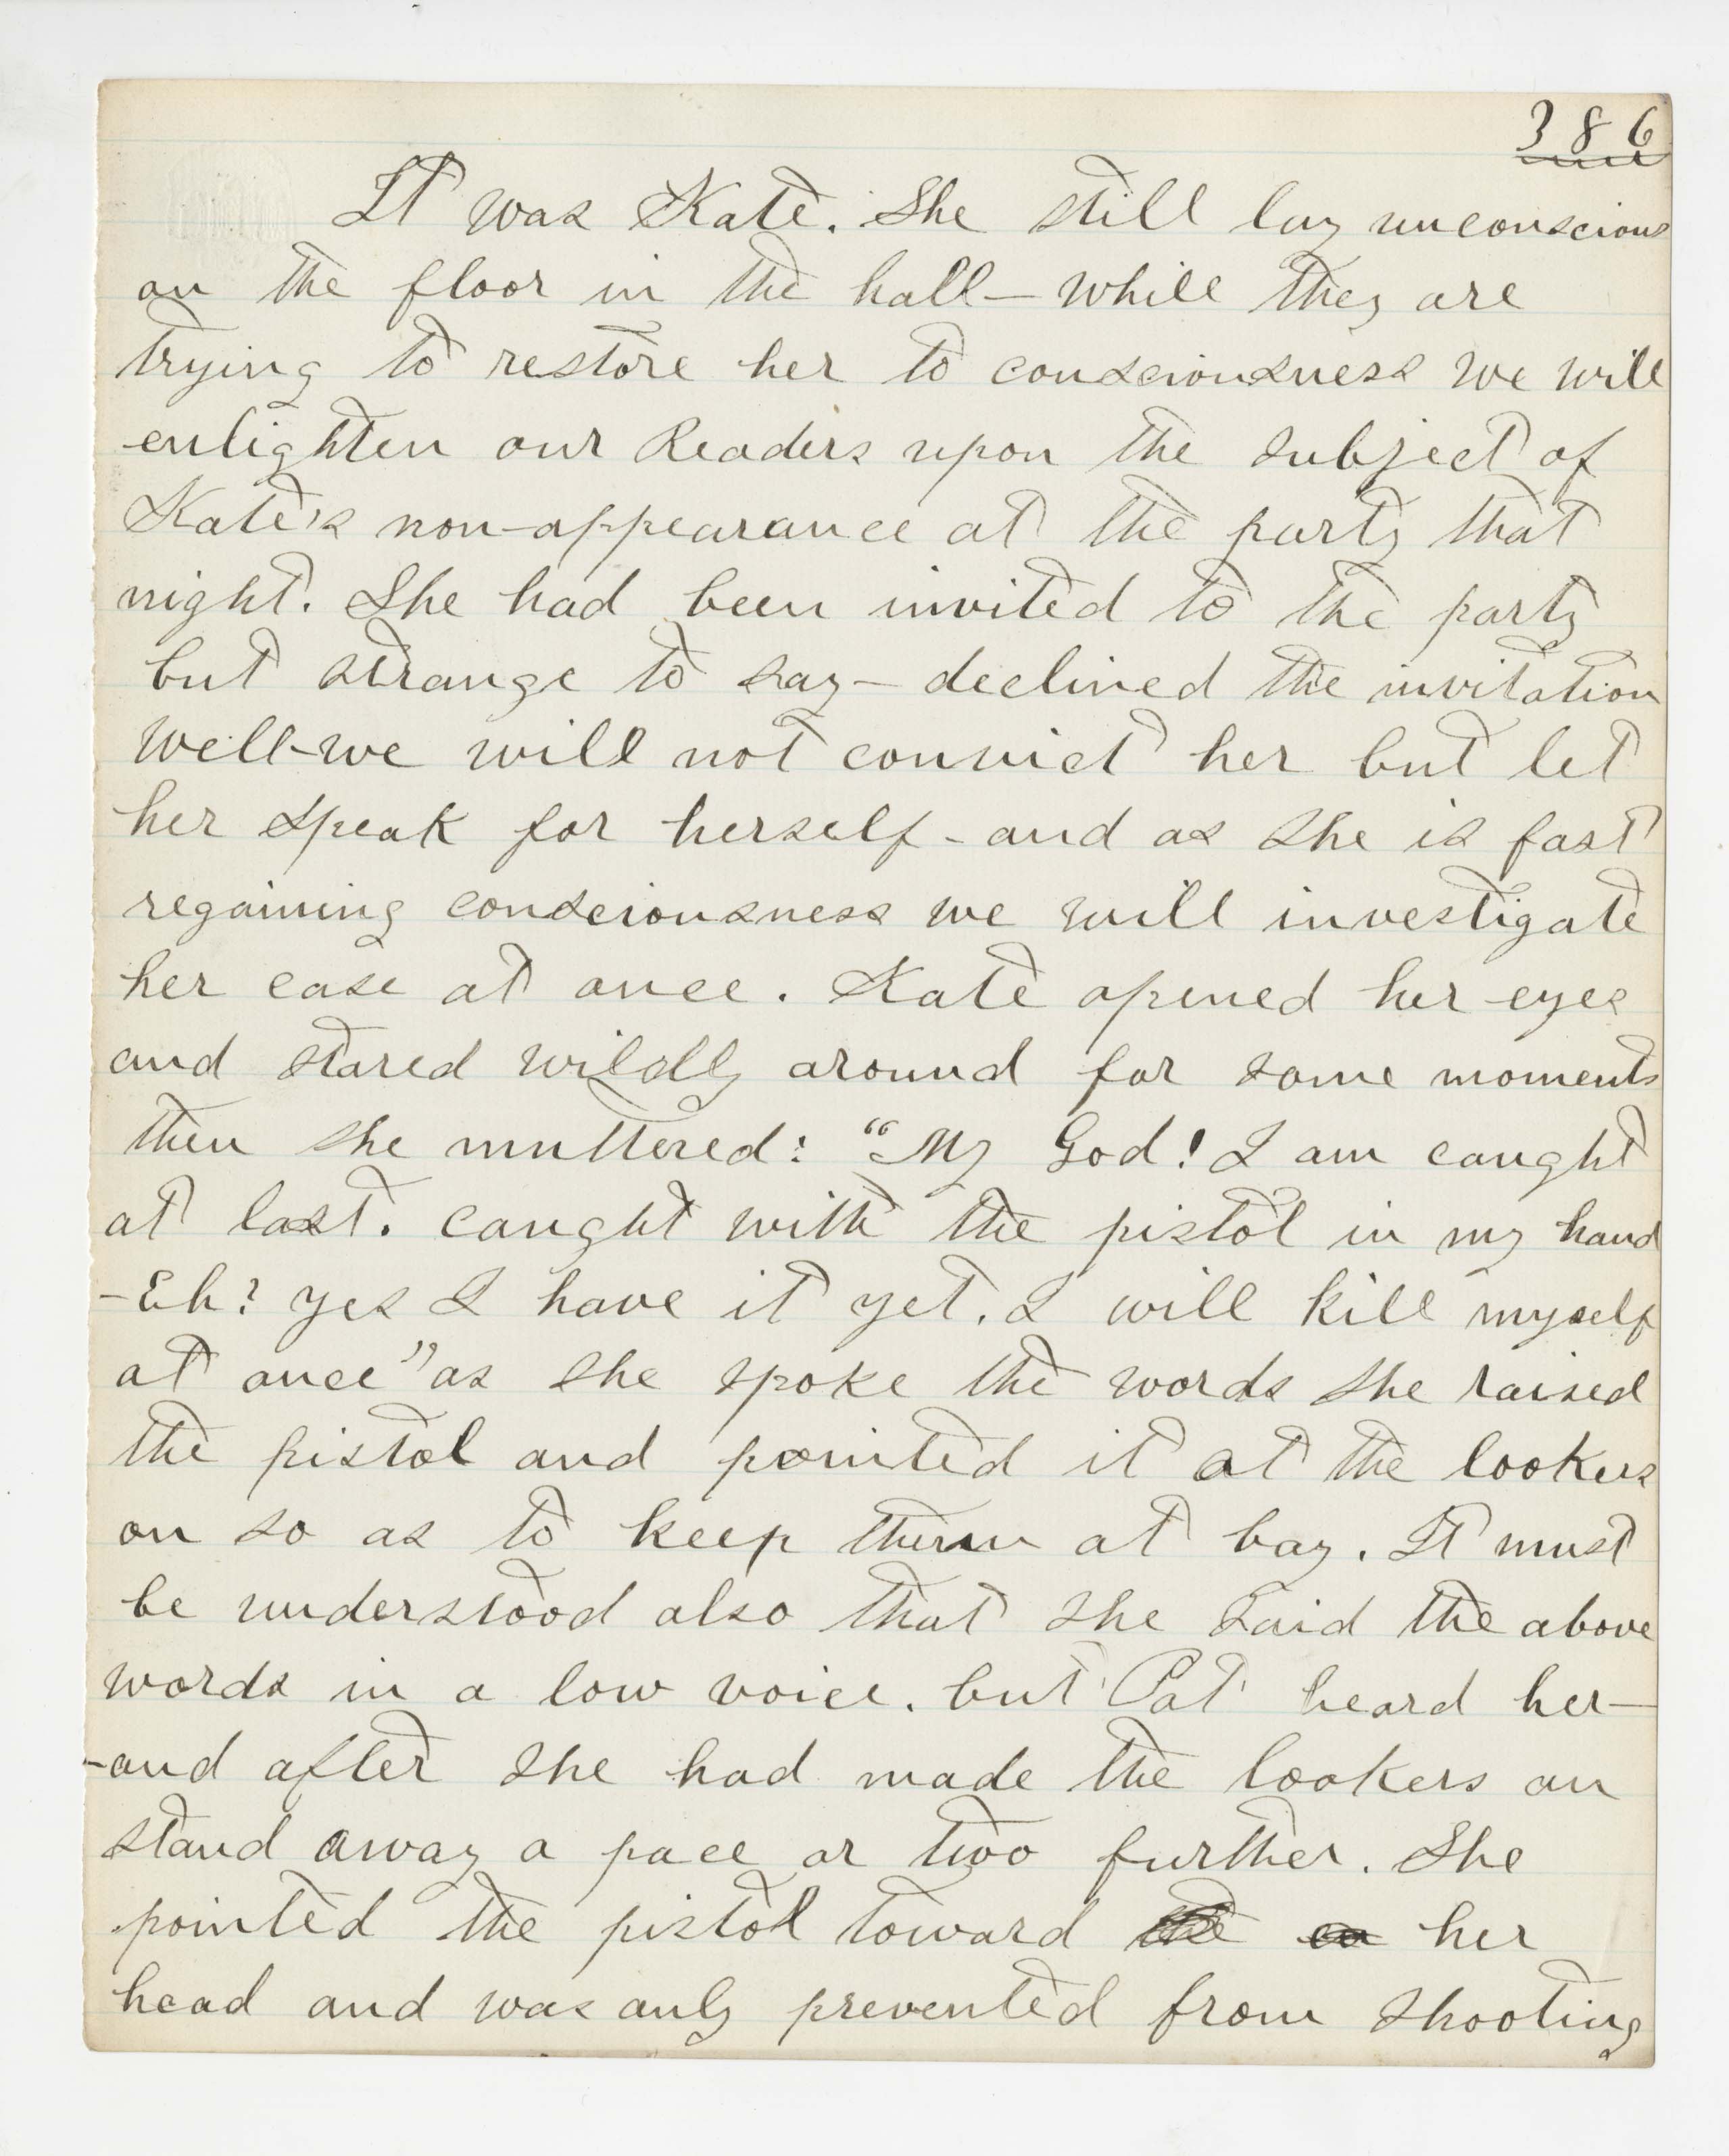 386
It was Kate. She still lay unconscious
on the floor in the hall— while they are
trying to restore her to consciousness we will
enlighten our Readers upon the subject of
Kate's non-appearance at the party that
night. She had been invited to the party
but strange to say— declined the invitation
well-we will not convict her but let
her speak for herself - and as she is fast
regaining consciousness we will investigate
her case at once. Kate opened her eyes
and stared wildly around for some moments
then she muttered: “My God! I am caught
at last. caught with the pistol in my hand
-Eh? yes I have it yet. I will kill myself
at once” as she spoke the words she raised
the pistol and pointed it at the lookers
on so as to keep them at bay. It must
be understood also that she said the above
words in a low voice. but 'Pat' heard her—
-and after she had made the lookers on
stand away a pace or two further. She
pointed the pistol toward her
head and was only prevented from shooting